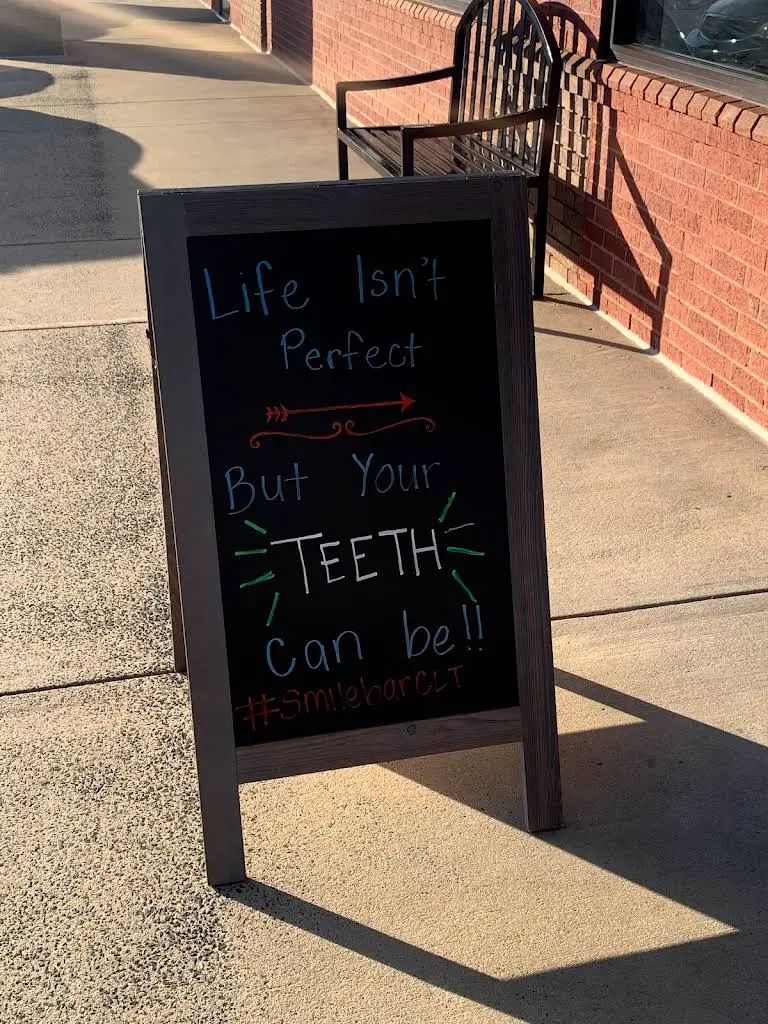 Life Isn't
Perfect
But Your
TEETH
can be!!
#SmilebarCLT